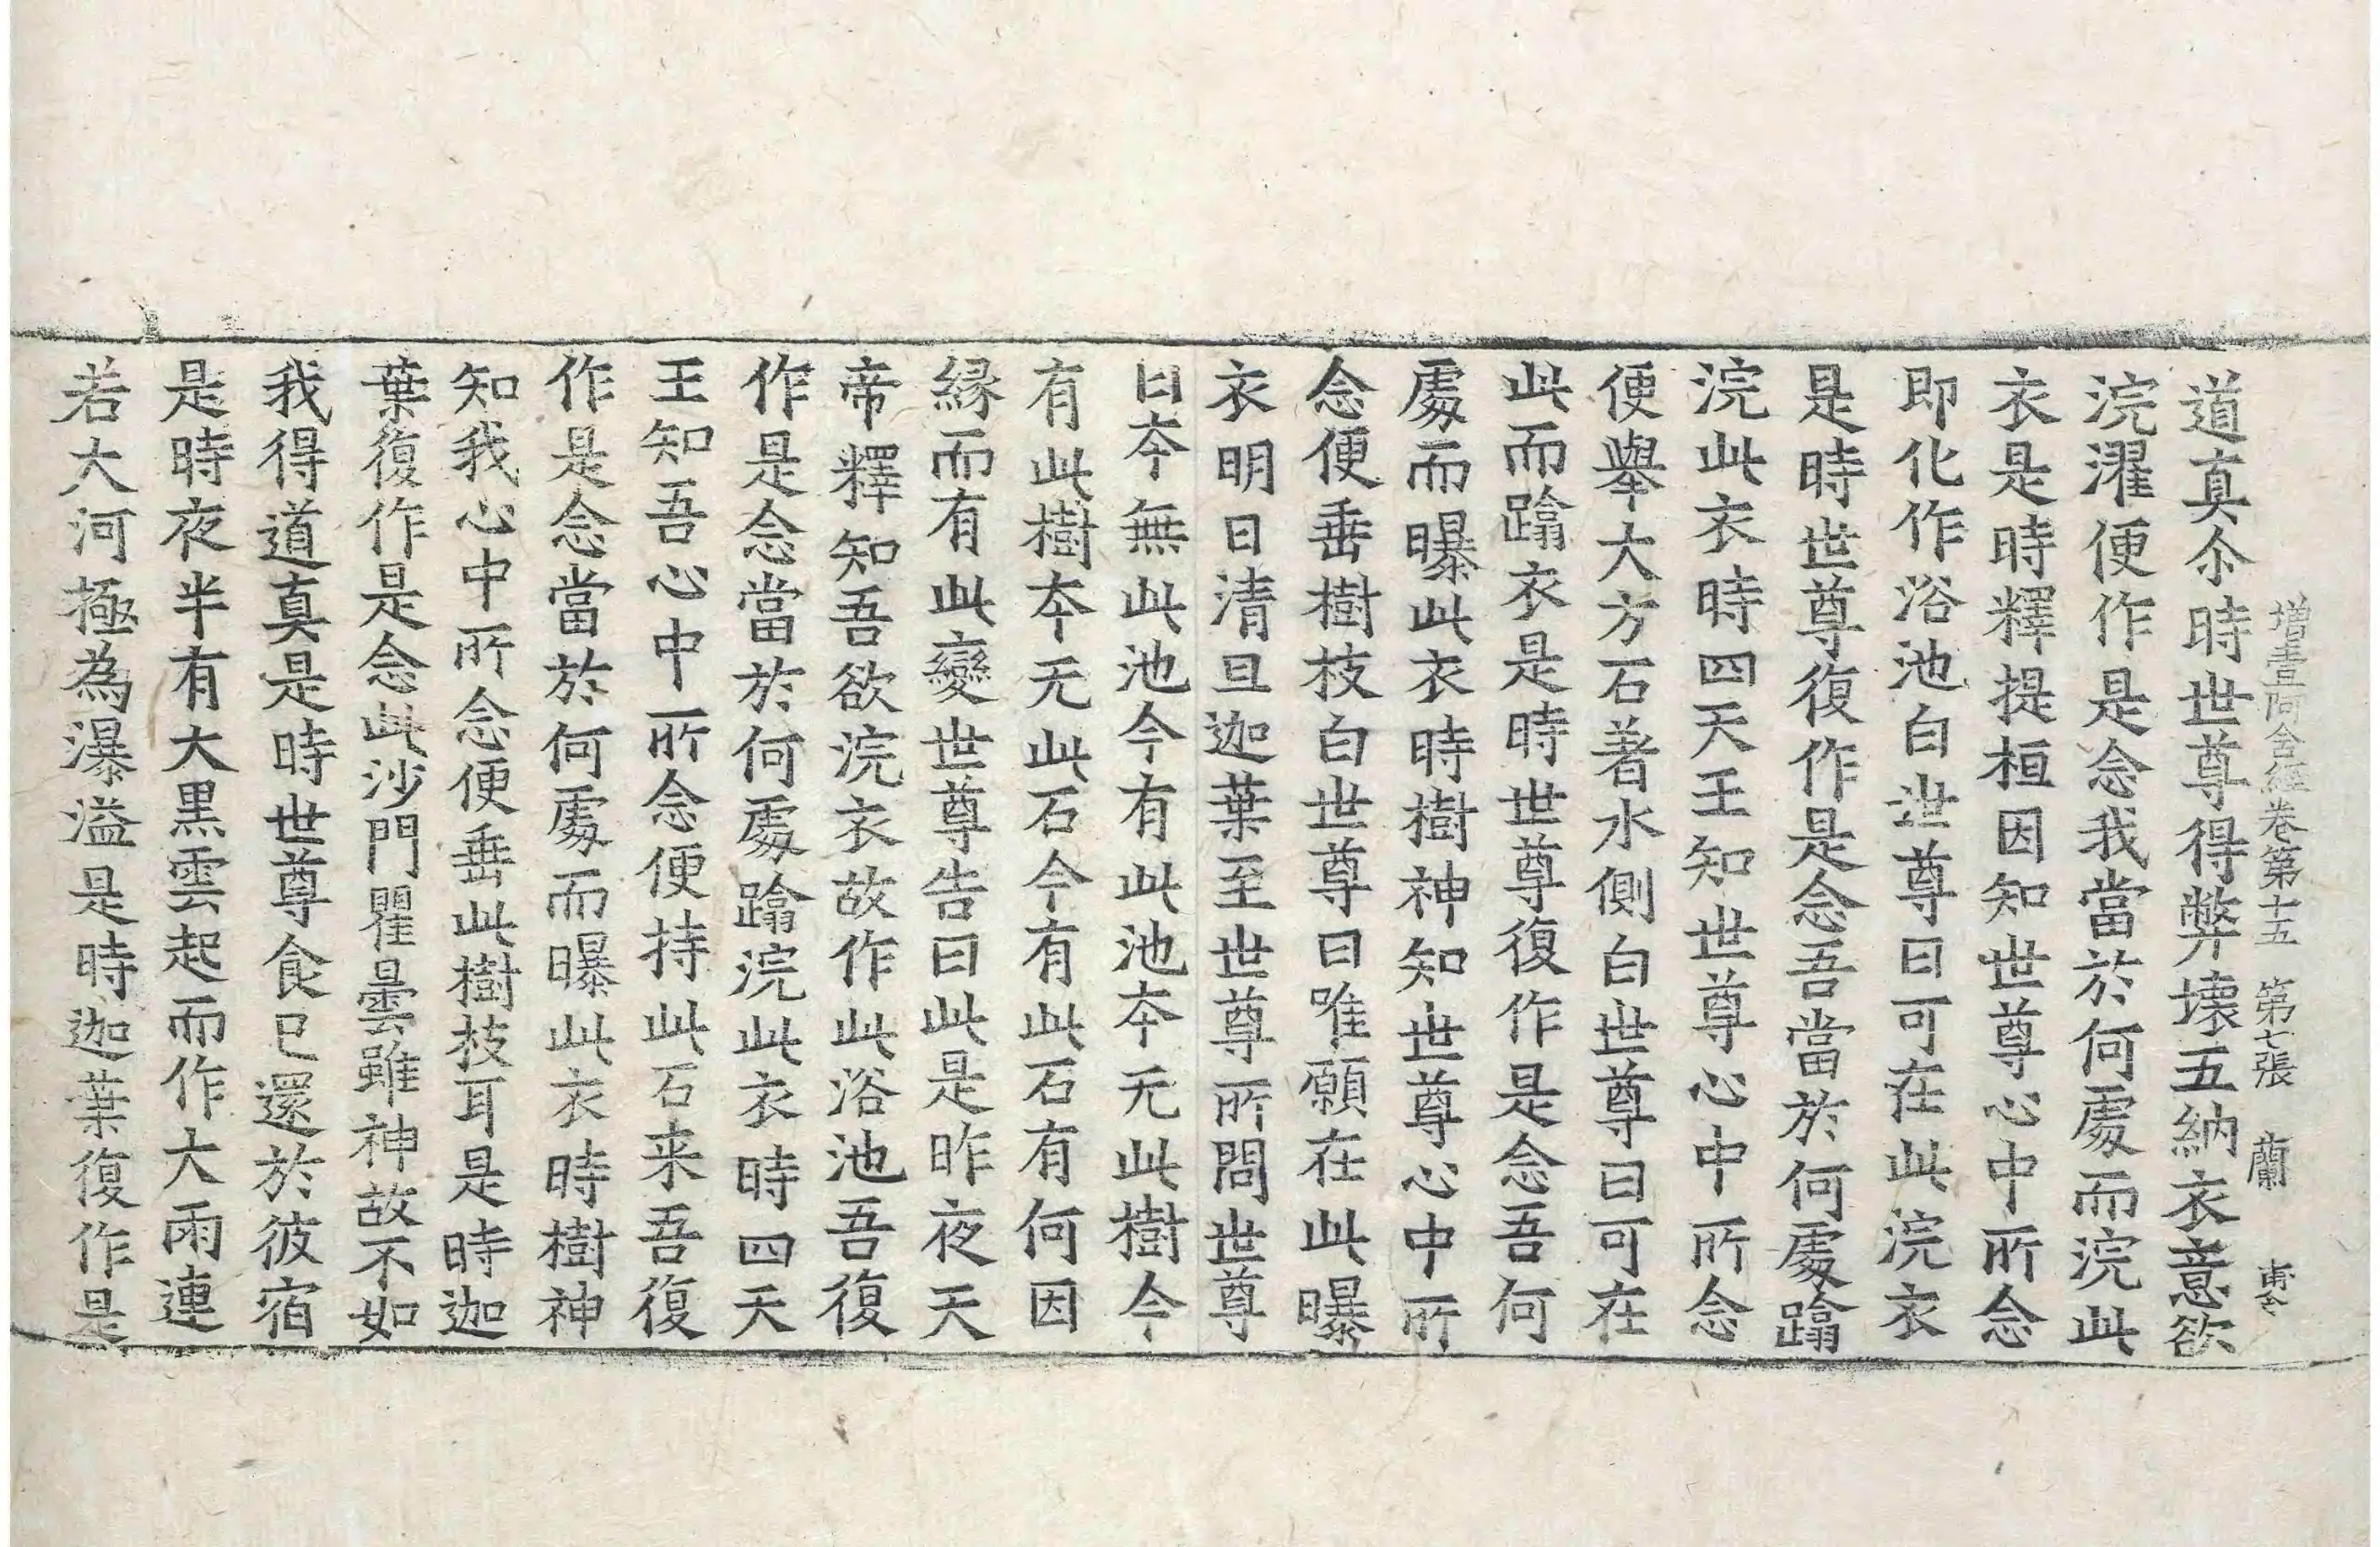 增壹阿含經卷第十五 第七張 蘭
道真尒時世尊得弊壞五納衣意欲
浣濯便作是念我當於何處而浣此
衣是時釋提桓因知世尊心中所念
即化作浴池白世尊曰可在此浣衣
是時世尊復作是念吾當於何處蹋
浣此衣時四天王知世尊心中所念
便舉大方石著水側白世尊曰可在
此而蹋衣是時世尊復作是念吾何
處而曝此衣時樹神知世尊心中所
念便垂樹枝白世尊曰唯願在此曝
衣明日清旦迦葉至世尊所問世尊
曰夲無此池今有此池夲无此樹今
有此樹夲无此石今有此石有何因
緣而有此變世尊告曰此是昨夜天
帝釋知吾欲浣衣故作此浴池吾復
作是念當於何處蹋浣此衣時四天
王知吾心中所念便持此石来吾復
作是念當於何處而曝此衣時樹神
知我心中所念便垂此樹枝耳是時迦
葉復作是念此沙門瞿曇雖神故不如
我得道真是時世尊食已還於彼宿
是時夜半有大黑雲起而作大雨連
若大河極為瀑溢是時迦葉復作是